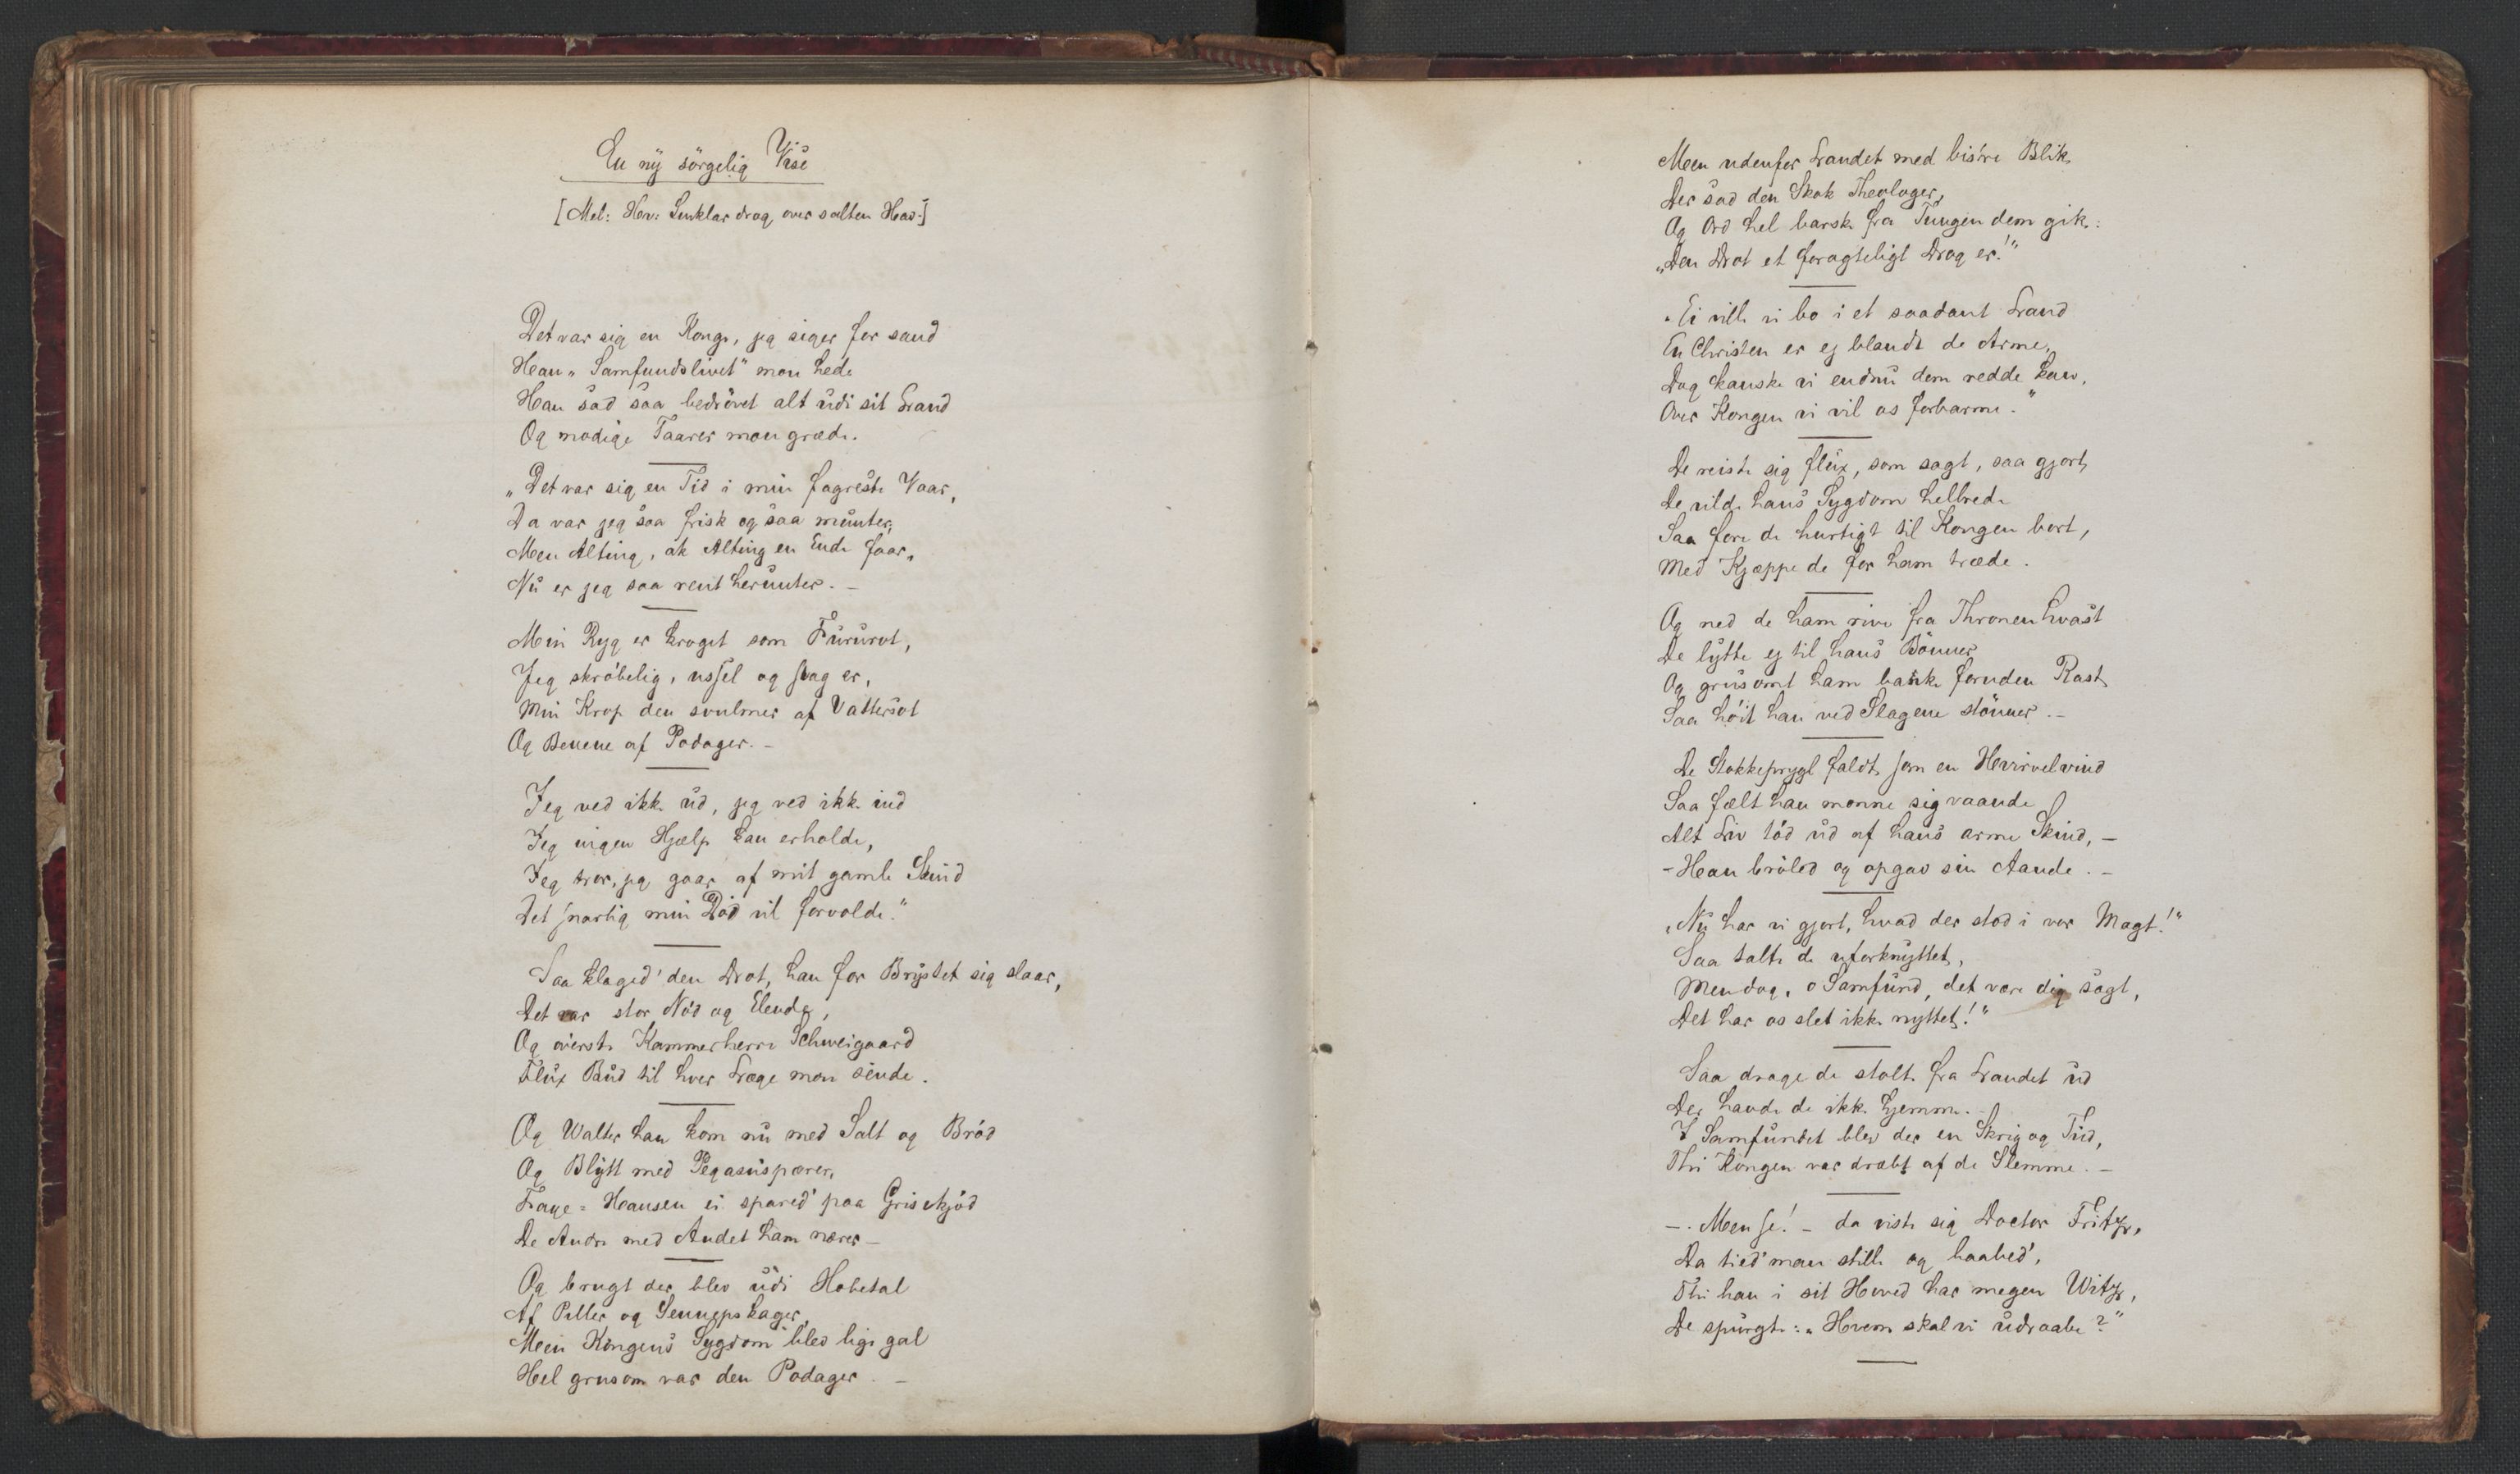 En ny sörgelig Vise
[Mel: Herr Sinklar drog over salten Hav.]
Det var sig en Konge, jeg siger for sand
Han „Samfundslivet" mon hede
Han sad saa bedrövet alt udi sit Land
Og modige Taarer mon græde.
„Det var sig en Tid i min fagreste Vaar,
Da var jeg saa frisk og saa munter,
Men Alting, ak Alting en Ende faar,
Nu er jeg saa rent herunter. –
Min Ryg er kroget som Fururot,
Jeg skröbelig, ussel og svag er,
Min Krop den svulmer af Vattersot
Og Benene af Podager. –
Jeg ved ikke ud, jeg ved ikke ind
Jeg ingen Hjælp kan erholde,
Jeg tror, jeg gaar af mit gamle Skind
Det snarlig min Död vil forvolde."
Saa klaged' den Drot, han for Brystet sig slaar,
Det var stor Nöd og Elende,
Og överste Kammerherre Schweigaard
Flux Bud til hver Læge mon sende.
Og Walter han kom nu med Salt og Bröd
Og Blytt med Pegasuspærer,
Faye-Hansen ei spared' paa Grisekjöd
De Andre med Andet ham nærer –
Og brugt der blev udi Hobetal
Af Piller og Sennepskager,
Men Kongens Sygdom blev lige gal
Hel grusom var den Podager. –
Men udenfor Landet med bistre Blik,
Der sad den Skok Theologer,
Og Ord hel barske fra Tungen dem gik:
„Den Drot et foragteligt Drog er!"
„Ei ville vi bo i et saadant Land
En Christen er ej blandt de Arme,
Dog kanske vi endnu dem redde kan,
Over Kongen vi vil os forbarme."
De reiste sig flux, som sagt, saa gjort,
De vilde hans Sygdom helbrede
Saa fore de hurtigt til Kongen bort,
Med Kjæppe de for ham træde.
Og ned de ham rive fra Thronen hvast
De lytte ej til hans Bönner
Og grusomt ham banke foruden Rast,
Saa höit han ved Slagene stönner. –
De Stokkeprygl faldt, som en Hvirvelvind
Saa fælt han monne sig vaande
Alt Liv töd ud af hans arme Skind, –
– Han bröled og opgav sin Aande. –
„Nu har vi gjort, hvad der stod i vor Magt!"
Saa talte de uforknyttet,
Men dog, o Samfund, det være dig sagt,
Det har os slet ikke nyttet!"
Saa droge de stolte fra Landet ud
Der havde de ikke hjemme. –
I Samfundet blev der en Skrig og Tud,
Thi Kongen var dræbt af de Slemme. –
– Men se! – da viste sig Doctor Fritz,
Da tied' man stille og haabed',
Thi han i sit Hoved har megen Witz,
De spurgte: „Hvem skal vi udraabe?"